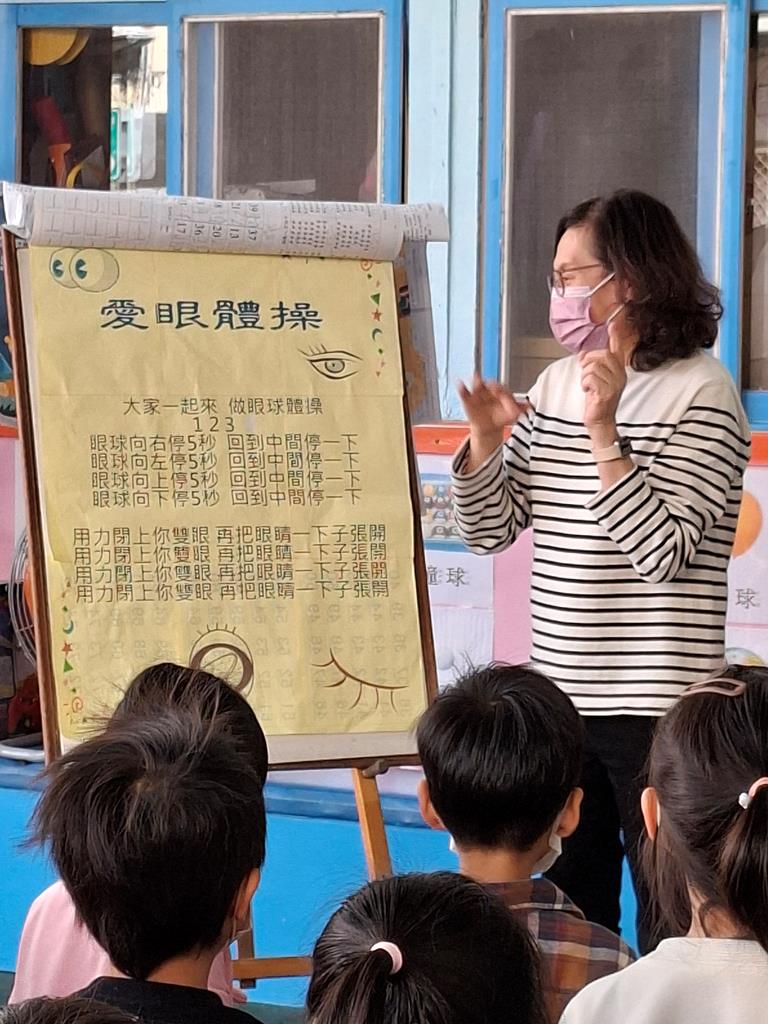 愛眼體操
大家一起來 做眼球體操
1 2 3
眼球向右停5秒 回到中間停一下
眼球向左停5秒 回到中間停一下
眼球向上停5秒 回到中間停一下
眼球向下停5秒 回到中間停一下
用力閉上你雙眼 再把眼睛一下子張開
用力閉上你雙眼 再把眼睛一下子張開
用力閉上你雙眼 再把眼睛一下子張開
用力閉上你雙眼 再把眼睛一下子張開
球
球